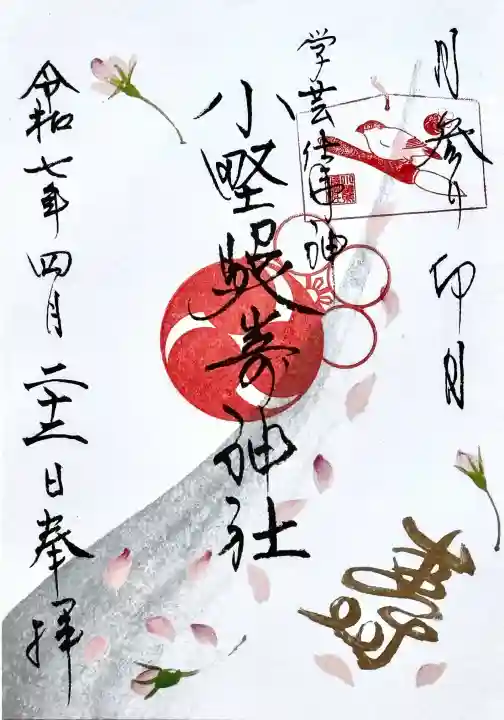 月参り 卯月
学芸仕事神
小野照崎神社
令和七年四月二十三日奉拝